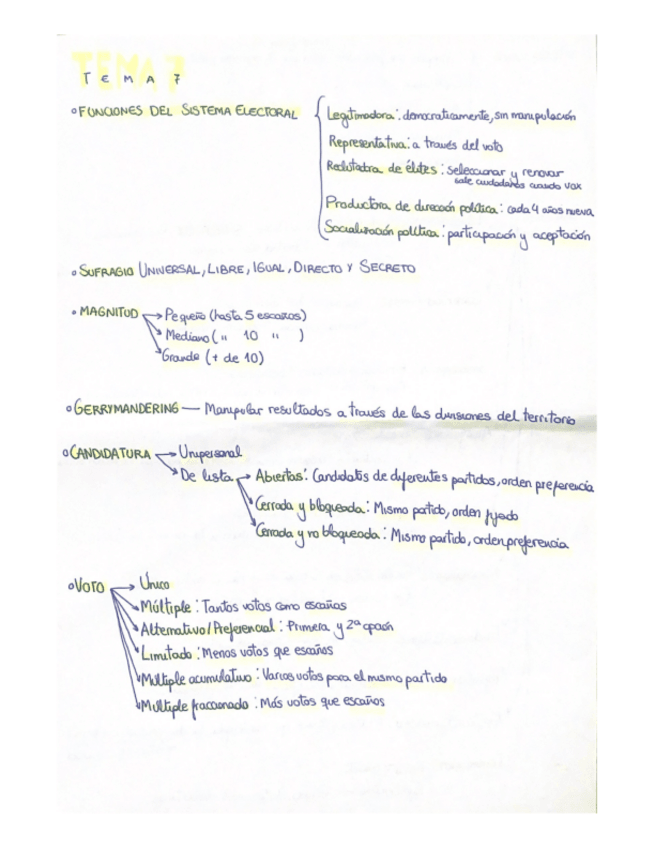 TEMA 7
TEMA 7
∘ FUNCIONES DEL SISTEMA ELECTORAL
Legitimadora: democraticamente, sin manipulación
Representativa: a través del voto
Reclutadora de élites: seleccionar y renovar
sale ciudadanos cuando vox
Productora de dirección política: cada 4 años nueva
Socialización política: participación y aceptación
∘ SUFRAGIO UNIVERSAL, LIBRE, IGUAL, DIRECTO Y SECRETO
∘ MAGNITUD → Pequeño (hasta 5 escaños)
→ Mediano (" 10 " )
→ Grande (+ de 10)
∘ GERRYMANDERING — Manipular resultados a través de las divisiones del territorio
∘ CANDIDATURA → Unipersonal
→ De lista → Abiertas: Candidatos de diferentes partidos, orden preferencia
→ Cerrada y bloqueada: Mismo partido, orden fijado
→ Cerrada y no bloqueada: Mismo partido, orden preferencia
∘ VOTO → Único
→ Múltiple: Tantos votos como escaños
→ Alternativo/Preferencial: Primera y 2ª opción
→ Limitado: Menos votos que escaños
→ Multiple acumulativo: Varios votos para el mismo partido
→ Multiple fraccionado: Más votos que escaños